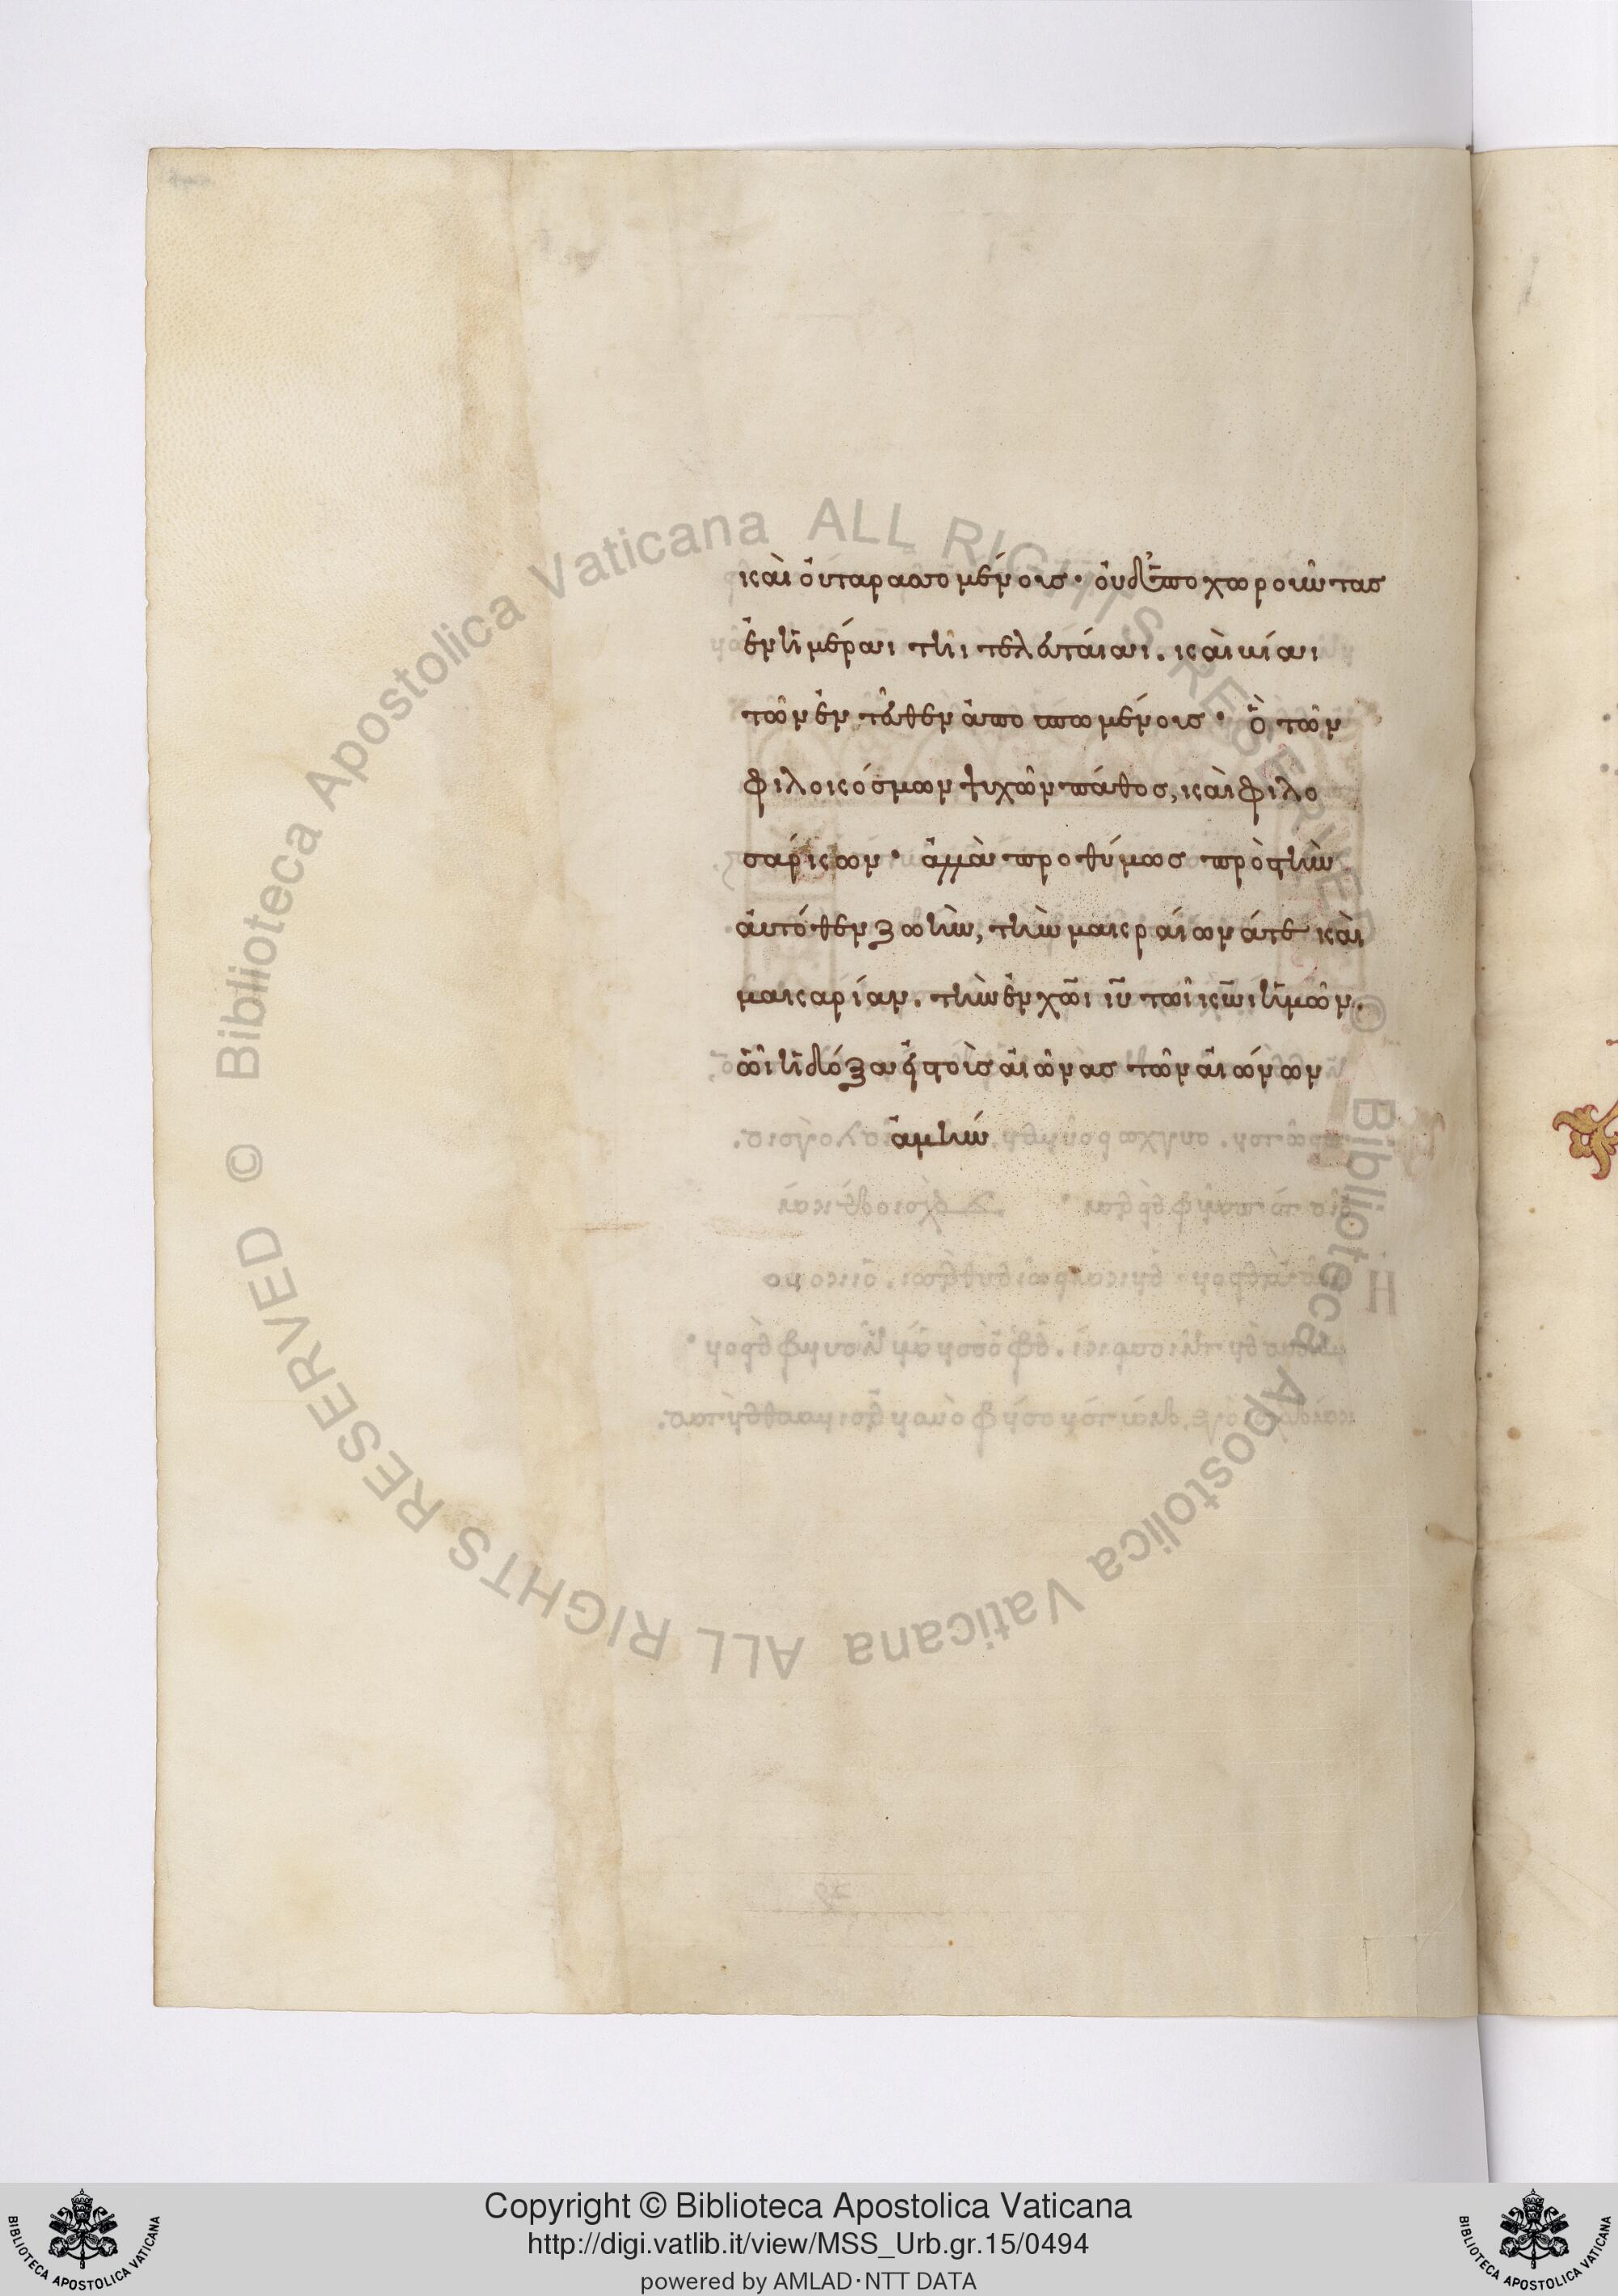 καὶ οὐ ταρασσομένους· οὐδ' ὑποχωροῦντας
ἐν ἡμέραι τῆι τελευταίαι. καὶ βίαι
τῶν ἐντεῦθεν ἀποσπωμένους· ὃ τῶν
φιλοκόσμων ψυχῶν πάθος, καὶ φιλο
σάρκων· ἀλλὰ προθύμως πρὸς τὴν
αὐτόθεν ζωὴν, τὴν μακραίωνάτε καὶ
μακαρίαν. τὴν ἐν χ̅ω̅ι ι̅υ̅ τῶι κ̅ω̅ι ἡμῶν.
ὧι ἡ δόξα εἰς τοὺς αἰῶνας τῶν αἰώνων
ἀμήν
© Biblioteca Apostolica Vaticana ALL RIGHTS RESERVED
© Biblioteca Apostolica Vaticana ALL RIGHTS RESERVED
BIBLIOTECA APOSTOLICA VATICANA
Copyright © Biblioteca Apostolica Vaticana
http://digi.vatlib.it/view/MSS_Urb.gr.15/0494
powered by AMLAD·NTT DATA
BIBLIOTECA APOSTOLICA VATICANA